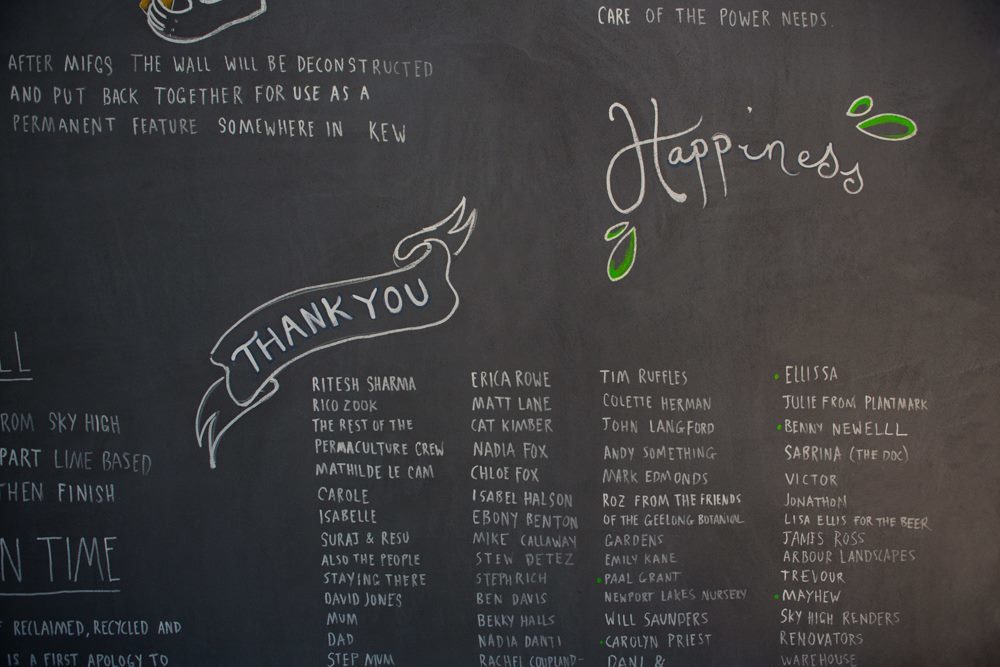 CARE OF THE POWER NEEDS.
AFTER MIFGS THE WALL WILL BE DECONSTRUCTED
AND PUT BACK TOGETHER FOR USE AS A
PERMANENT FEATURE SOMEWHERE IN KEW
Happiness
THANK YOU
LL
ROM SKY HIGH
PART LIME BASED
THEN FINISH
N TIME
RECLAIMED, RECYCLED AND
IS A FIRST APOLOGY TO
RITESH SHARMA
RICO ZOOK
THE REST OF THE
PERMACULTURE CREW
MATHILDE LE CAM
CAROLE
ISABELLE
SURAJ & RESU
ALSO THE PEOPLE
STAYING THERE
DAVID JONES
MUM
DAD
STEP MUM
ERICA ROWE
MATT LANE
CAT KIMBER
NADIA FOX
CHLOE FOX
ISABEL HALSON
EBONY BENTON
MIKE CALLAWAY
STEW DETEZ
STEPH RICH
BEN DAVIS
BEKKY HALLS
NADIA DANTI
RACHEL COUPLAND-
TIM RUFFLES
COLETTE HERMAN
JOHN LANGFORD
ANDY SOMETHING
MARK EDMONDS
ROZ FROM THE FRIENDS
OF THE GEELONG BOTANICAL
GARDENS
EMILY KANE
PAAL GRANT
NEWPORT LAKES NURSERY
WILL SAUNDERS
CAROLYN PRIEST
DANI &
ELLISSA
JULIE FROM PLANTMARK
BENNY NEWELLL
SABRINA (THE DOC)
VICTOR
JONATHON
LISA ELLIS FOR THE BEER
JAMES ROSS
ARBOUR LANDSCAPES
TREVOUR
MAYHEW
SKY HIGH RENDERS
RENOVATORS
WAREHOUSE